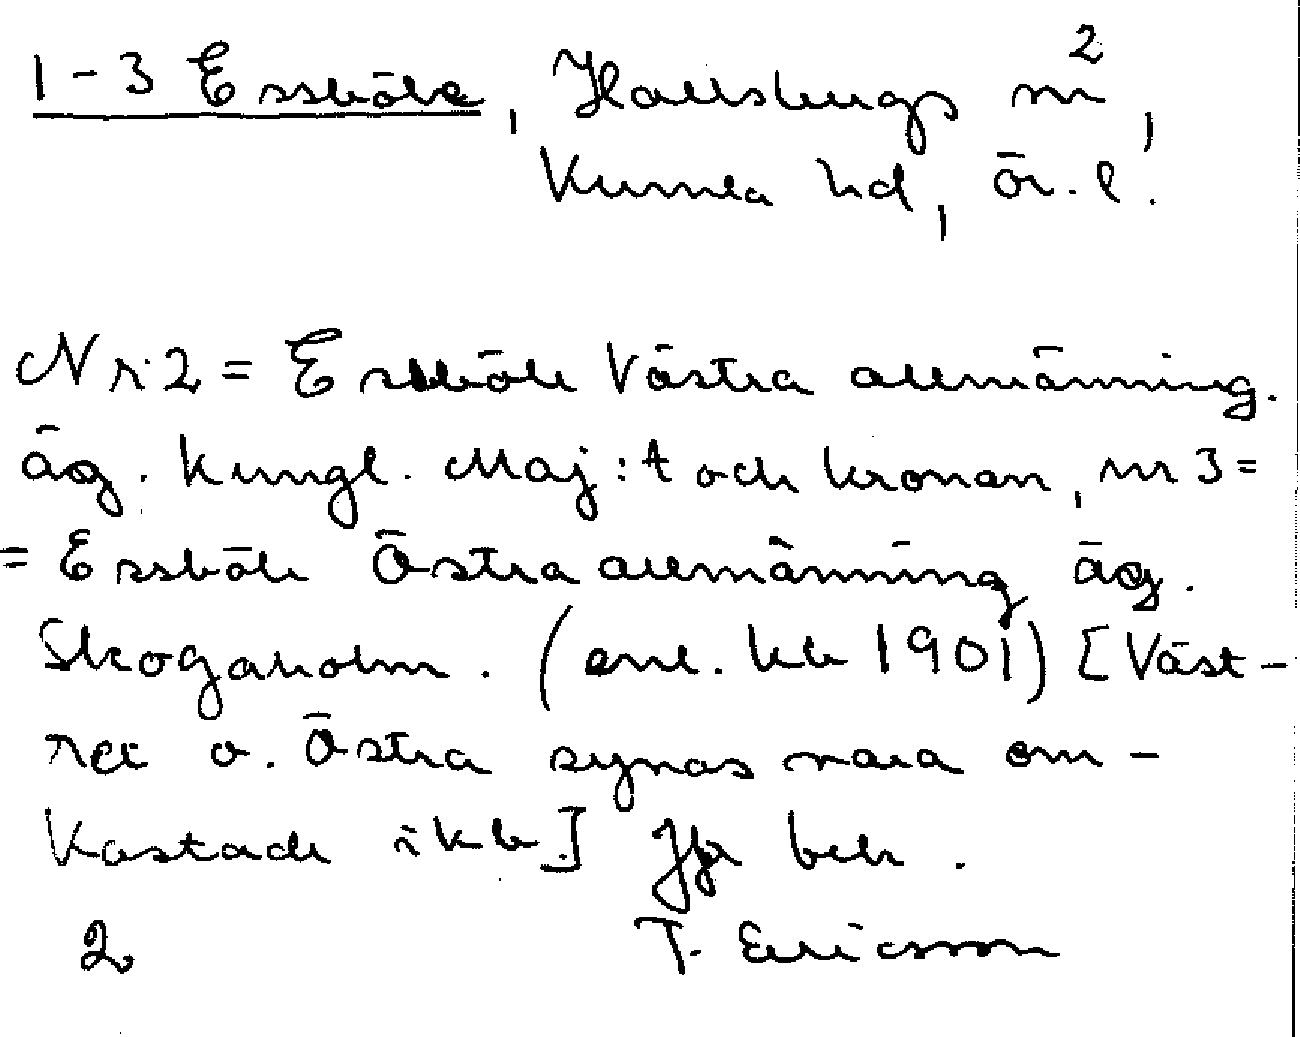 1-3 Essböle, Hallsbergs m²,
Kumla hd, Ör. l.
Nr 2 = Essböle Västra allmänning.
äg. Kungl. Maj:t och kronan, nr 3 =
= Essböle Östra allmänning äg.
Skogaholm. (enl. kb 1901) [Väst-
ra o. Östra synas vara om-
kastade i kb.] Jfr bebr.
2 T. Ericsson